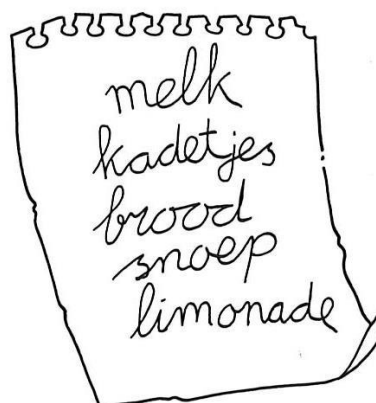 melk
kadetjes
brood
snoep
limonade